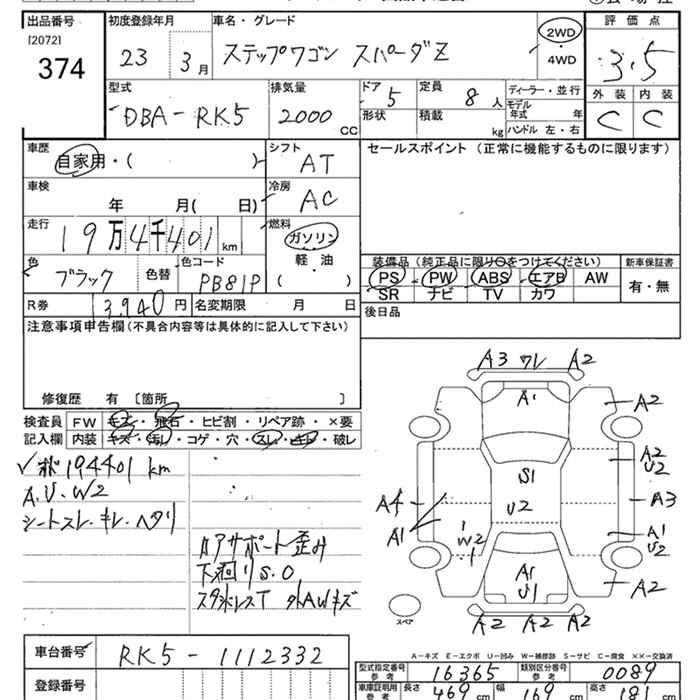 出品番号 初度登録年月 車名・グレード 評価点
[2072]
374
23 3月 ステップワゴン スパーダZ 2WD・4WD 3.5
型式 排気量 ドア 定員 ディーラー・並行 外装 内装
DBA-RK5 2000CC 5 8人 モデル年式 年 C C
形状 積載 kg ハンドル 左・右
車歴 シフト セールスポイント (正常に機能するものに限ります)
自家用・( ) AT
車検 冷房
年 月( 日) AC
走行 燃料
19万4千401km ガソリン
軽・油
( )
色 色替 色コード 装備品 (純正品に限り○をつけてください) 新車保証書
ブラック PB81P PS PW ABS エアB AW 有・無
SR ナビ TV カワ
R券 13,940円 名変期限 月 日 後日品
注意事項申告欄(不具合内容等は具体的に記入して下さい)
修復歴 有 〔箇所 〕
検査員記入欄 FW キズ・飛石・ヒビ割・リペア跡・×要
内装 キズ・汚れ・コゲ・穴・スレ・キレ・破レ
194401 km
A.U.W2
シートスレ.キレ.ヘタリ
コアサポート歪み
下廻りS.O
外AWキズ
A3 ワレ A2
A1
A2
A2
U2
S1
U2
A4
A1
A3
W2
A1
U2
A1
U1
A2
スペア
A2 A2 A2
A-キズ E-エクボ U-凹み W-補修跡 S-サビ C-腐食 ××-交換済
車台番号 RK5-1112332
登録番号
型式指定番号 参考 16365 類別区分番号 参考 0089
車庫証明用 参考 長さ 469cm 幅 169cm 高さ 181cm